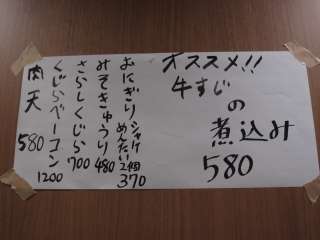 オススメ!!
牛すじ
の
煮込み
580
おにぎり シャケ めんたい 2個 370
みそきゅうり 480
さらしくじら 700
くじらベーコン 1200
肉天 580